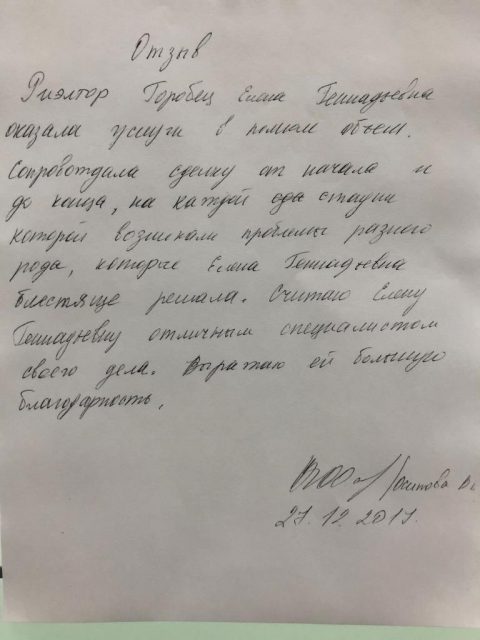 Отзыв
Риэлтор Горобец Елена Геннадьевна
оказала услуги в полном объем.
Сопровотдала сделку от начала и
до конца, на каждой ода стадии
которой возникали проблемы разного
рода, которые Елена Геннадьевна
блестяще решала. Считаю Елену
Геннадьевну отличным специалистом
своего дела. Выражаю ей большую
благодарность.
27.12.2017.